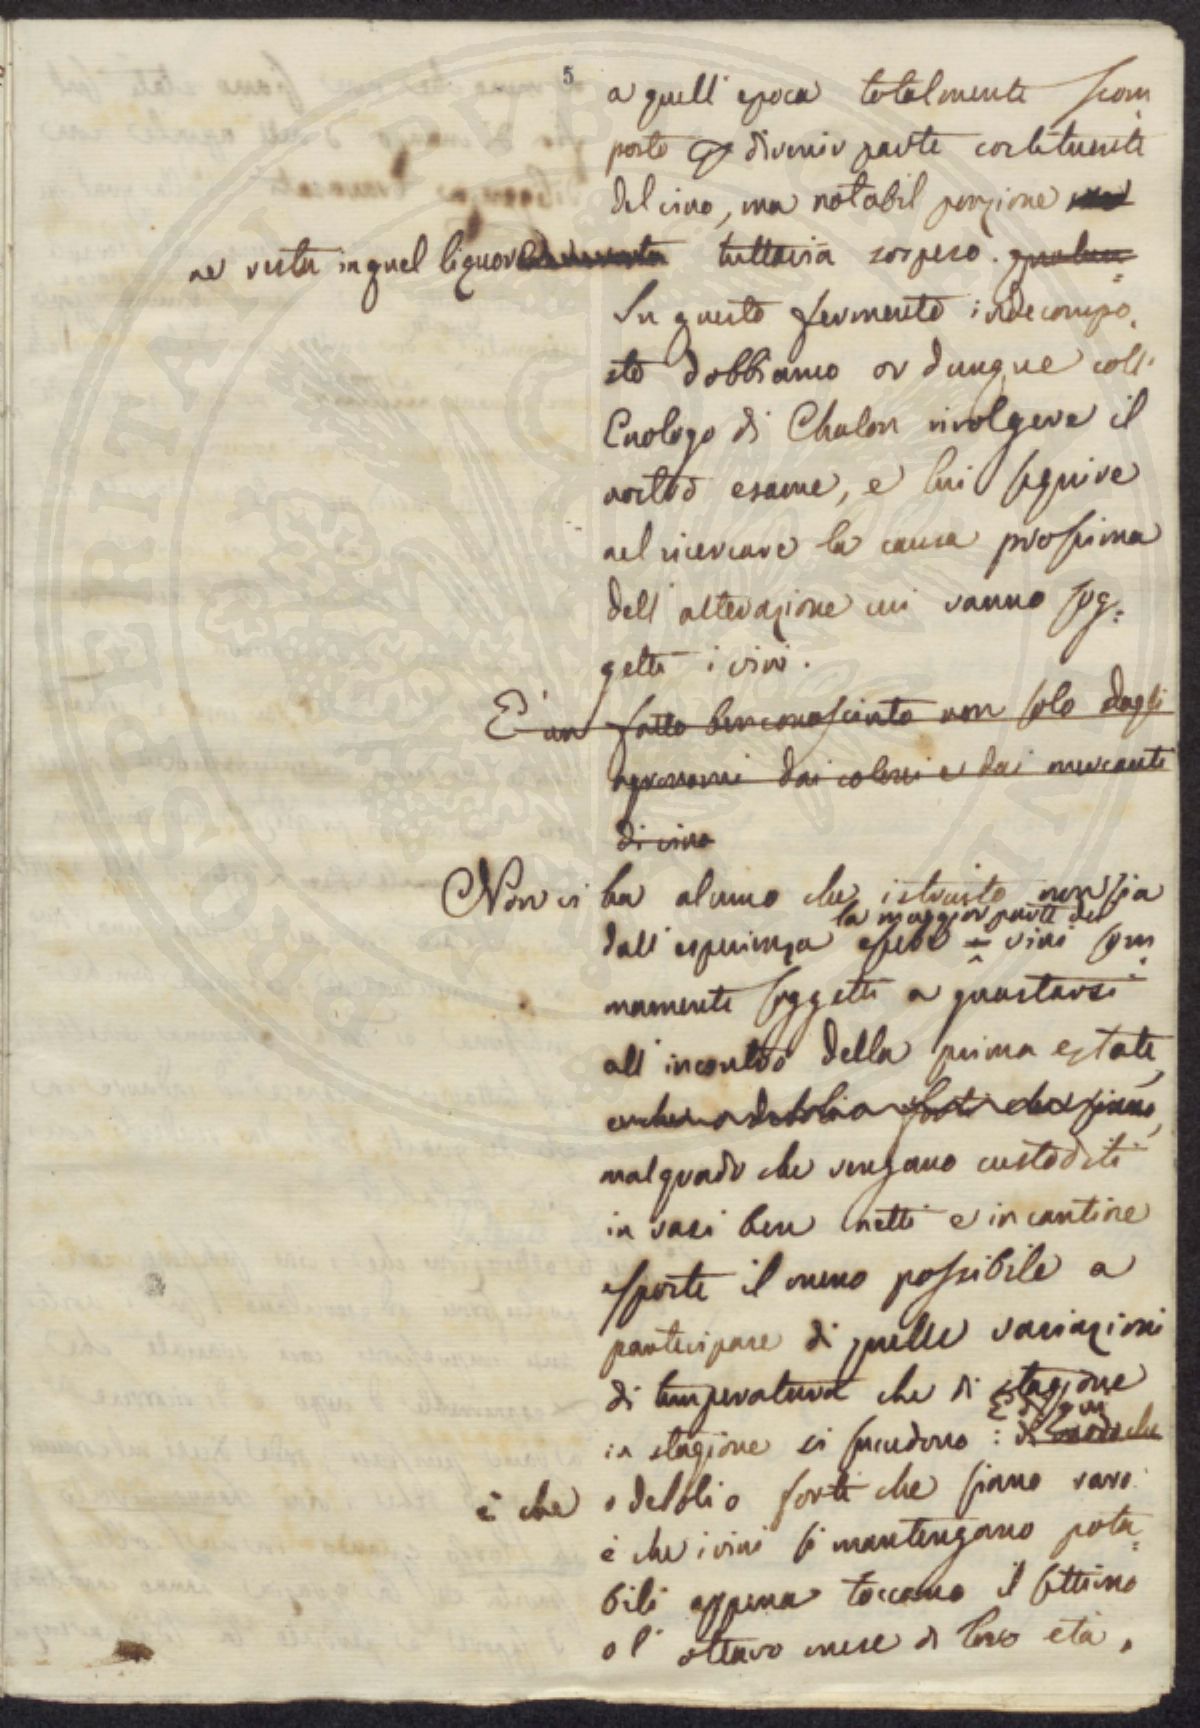 5
a quell' epoca totalmente scom
posto e divenir parte costituente
del vino, ma notabil porzione
ne resta in quel liquore tuttavia sospeso. qualun=
Su questo fermento indecompo=
sto dobbiamo or dunque coll'
Enologo di Chalon rivolgere il
nostro esame, e lui seguire
nel ricercare la causa prossima
dell' alterazione cui vanno sog=
getti i vini.
E' un fatto ben conosciuto non solo dagli
agronomi dai coloni e dai mercanti
di vino
Non vi ha alcuno che istruito non sia
la maggior parte dei
dall' esperienza essere i vini som=
mamente soggetti a guastarsi
all' incontro della prima estate,
o deboli o forti che siano,
malgrado che vengano custoditi
in vasi ben netti e in cantine
esposte il meno possibile a
partecipare di quelle variazioni
di temperatura che di stagione
in stagione si succedono: di modo che
è che o deboli o forti che siano raro
è che i vini si mantengano pota=
bili appena toccano il settimo
o l' ottavo mese di loro età.